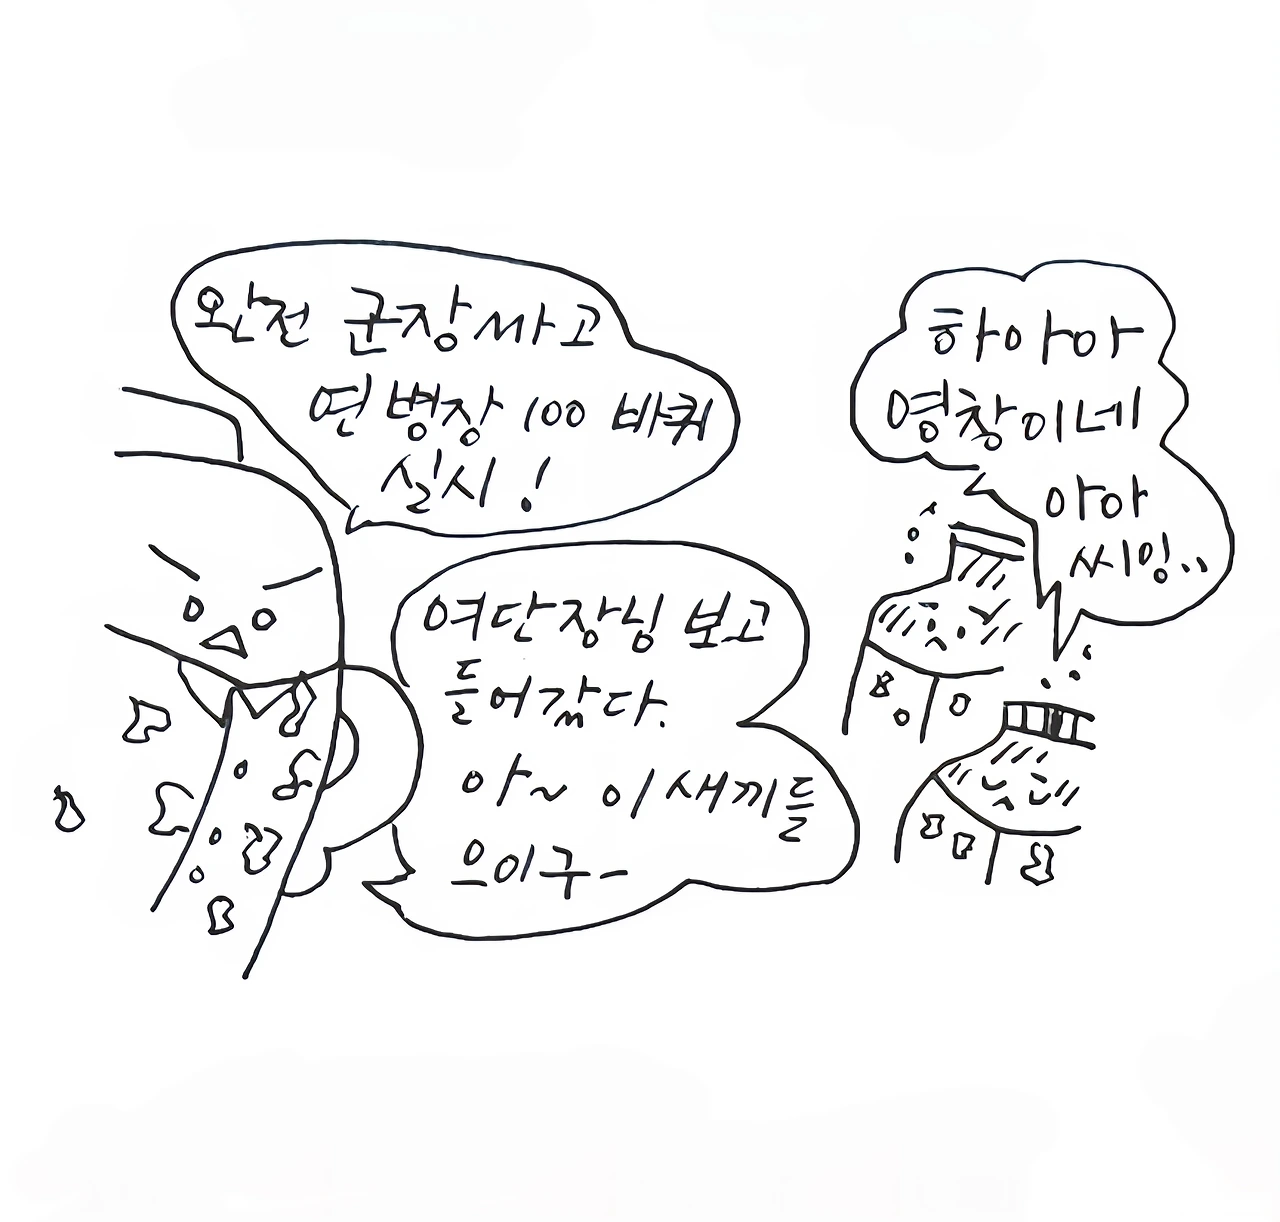 완전 군장 싸고
연병장 100 바퀴
실시!
여단장님 보고
들어갔다.
아~ 이 새끼들
으이구-
하아아
영창이네
아아
씨잉..